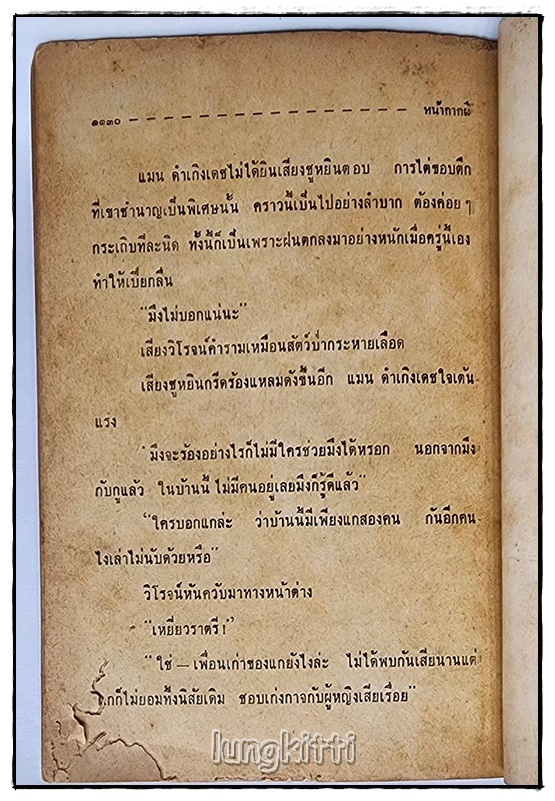 ๑๑๓๐ – – – – – – – – – – – – – – – – – หน้ากากผี
แมน ดำเกิงเดชไม่ได้ยินเสียงชูหยินตอบ การไต่ขอบตึก
ที่เขาชำนาญเป็นพิเศษนั้น คราวนี้เป็นไปอย่างลำบาก ต้องค่อย ๆ
กระเถิบทีละนิด ทั้งนี้ก็เป็นเพราะฝนตกลงมาอย่างหนักเมื่อครู่นี้เอง
ทำให้เปียกลื่น
“มึงไม่บอกแน่นะ”
เสียงวิโรจน์คำรามเหมือนสัตว์ป่ากระหายเลือด
เสียงชูหยินกรีดร้องแหลมดังขึ้นอีก แมน ดำเกิงเดชใจเต้น
แรง
“มึงจะร้องอย่างไรก็ไม่มีใครช่วยมึงได้หรอก นอกจากมึง
กับกูแล้ว ในบ้านนี้ ไม่มีคนอยู่เลยมึงก็รู้ดีแล้ว”
“ใครบอกแกล่ะ ว่าบ้านนี้มีเพียงแกสองคน กันอีกคน
ไงเล่าไม่นับด้วยหรือ”
วิโรจน์หันควับมาทางหน้าต่าง
“เหยี่ยวราตรี!”
“ใช่ — เพื่อนเก่าของแกยังไงล่ะ ไม่ได้พบกันเสียนานแต่
แกก็ไม่ยอมทิ้งนิสัยเดิม ชอบเก่งกาจกับผู้หญิงเสียเรื่อย”
lungkitti